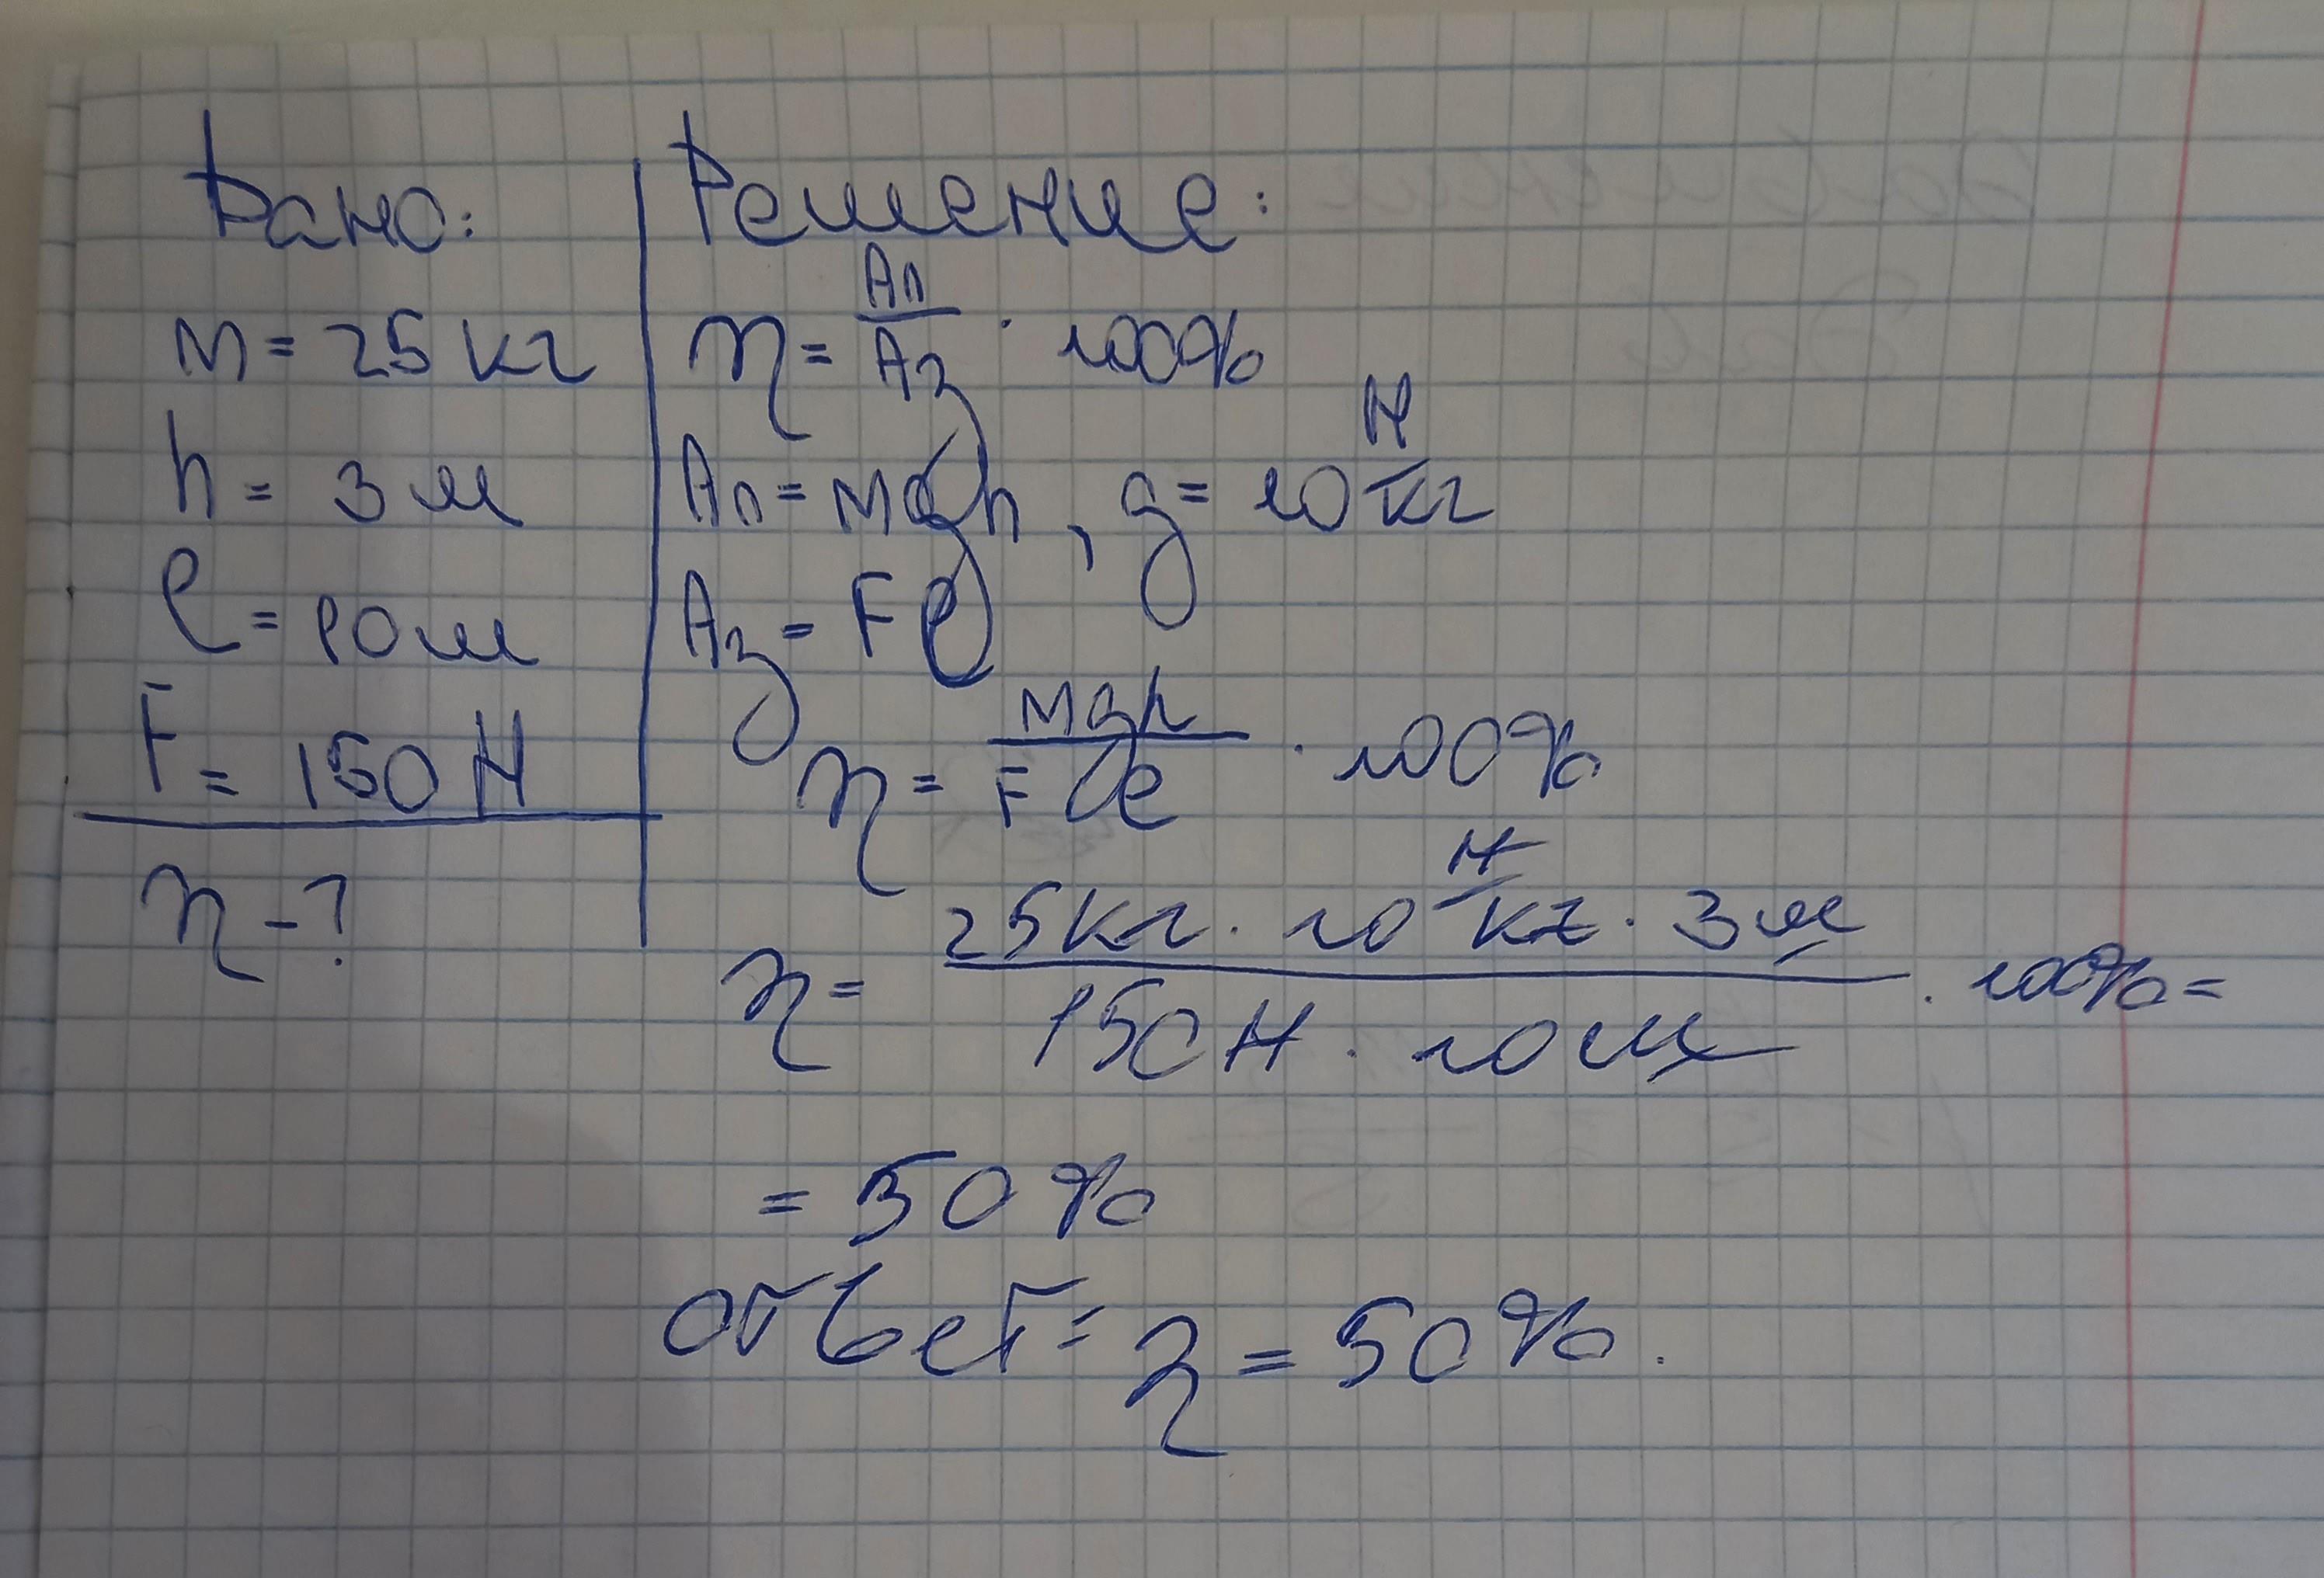 Дано:
m = 25 кг
h = 3 м
l = 10 м
F = 150 Н
η - ?
Решение:
η = Aп/Aз · 100%
Aп = mgh, g = 10 Н/кг
Aз = Fl
η = mgh/Fl · 100%
η = 25 кг · 10 Н/кг · 3 м / 150 Н · 10 м · 100% =
= 50%
Ответ: η = 50%.